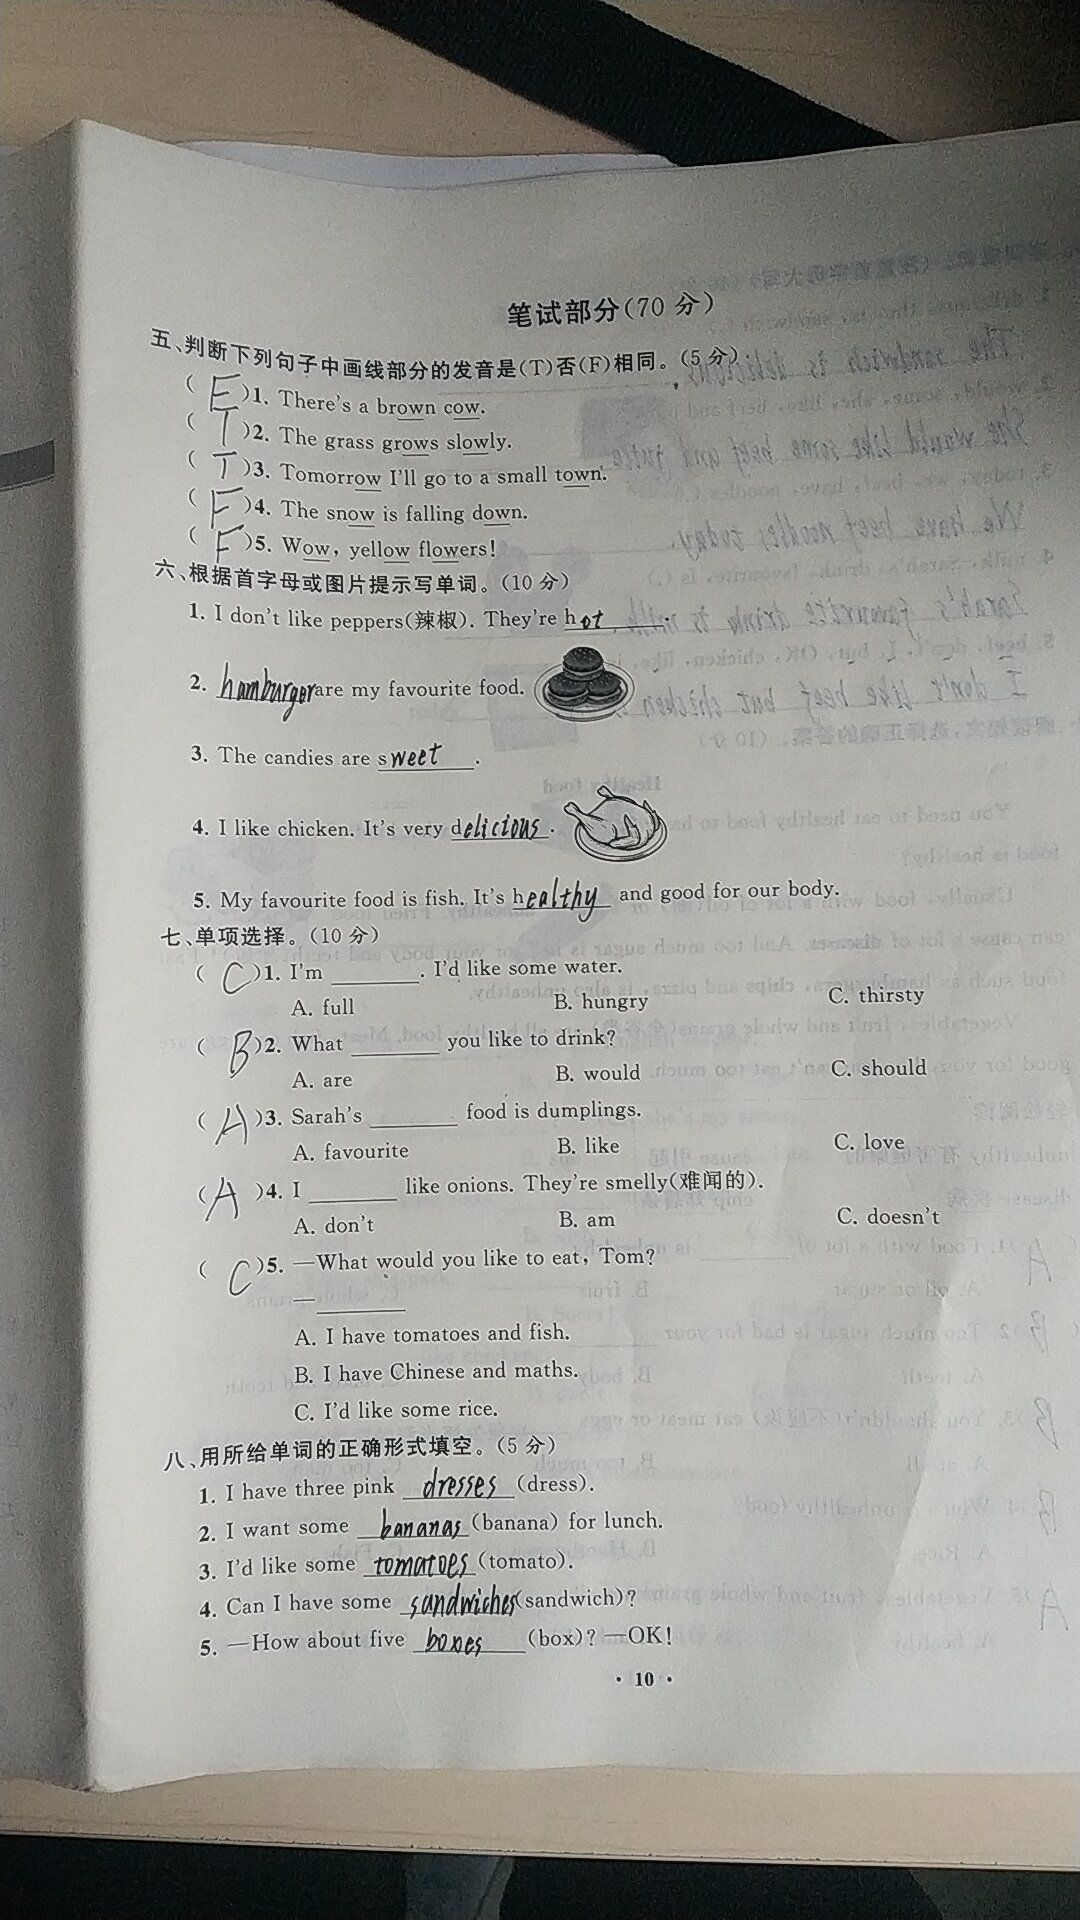 笔试部分(70分)
五、判断下列句子中画线部分的发音是(T)否(F)相同。(5分)
( F )1. There's a brown cow.
( T )2. The grass grows slowly.
( T )3. Tomorrow I'll go to a small town.
( F )4. The snow is falling down.
( F )5. Wow, yellow flowers!
六、根据首字母或图片提示写单词。(10分)
1. I don't like peppers(辣椒). They're hot.
2. hamburger are my favourite food.
3. The candies are sweet.
4. I like chicken. It's very delicious.
5. My favourite food is fish. It's healthy and good for our body.
七、单项选择。(10分)
( C )1. I'm ________. I'd like some water.
A. full B. hungry C. thirsty
( B )2. What ________ you like to drink?
A. are B. would C. should
( A )3. Sarah's ________ food is dumplings.
A. favourite B. like C. love
( A )4. I ________ like onions. They're smelly(难闻的).
A. don't B. am C. doesn't
( C )5. —What would you like to eat, Tom?
—________
A. I have tomatoes and fish.
B. I have Chinese and maths.
C. I'd like some rice.
八、用所给单词的正确形式填空。(5分)
1. I have three pink dresses (dress).
2. I want some bananas (banana) for lunch.
3. I'd like some tomatoes (tomato).
4. Can I have some sandwiches (sandwich)?
5. —How about five boxes (box)? —OK!
· 10 ·